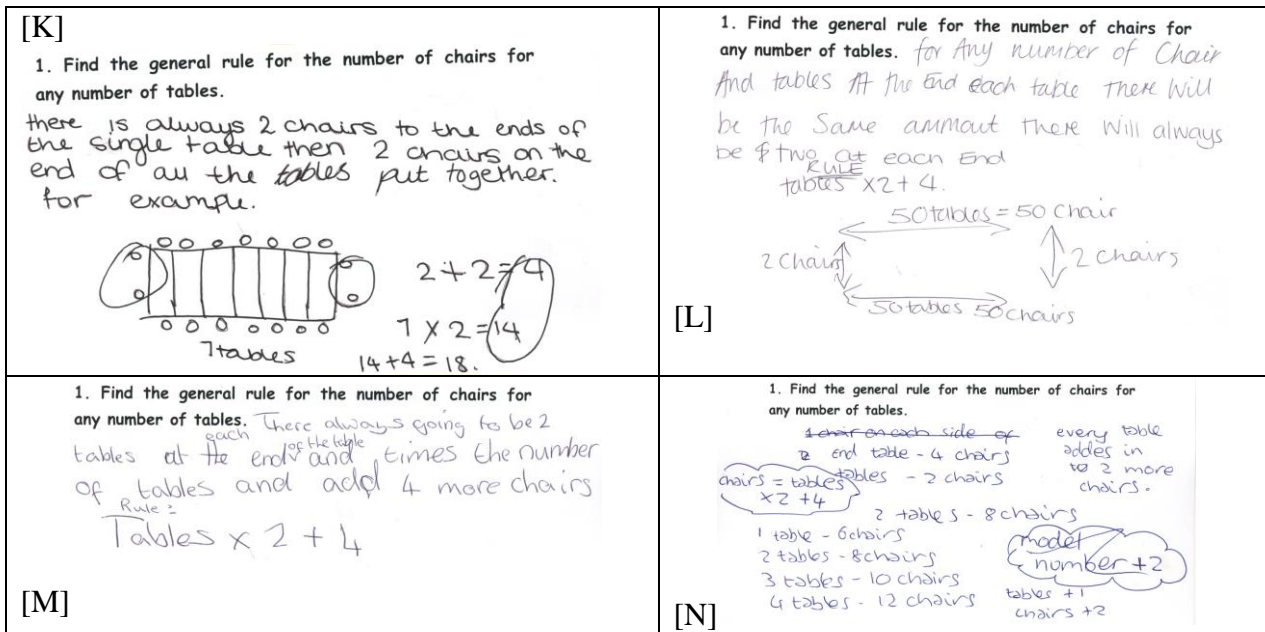 [K]
1. Find the general rule for the number of chairs for
any number of tables.
there is always 2 chairs to the ends of
the single table then 2 chairs on the
end of all the tables put together.
for example.
2+2=4
7 x 2 = 14
7tables
14+4=18.
1. Find the general rule for the number of chairs for
any number of tables. for Any number of Chair
And tables At the End each table There Will
be the Same ammout there Will always
be two at each End
RULE
tables x2+4.
50tables = 50 Chair
2 Chairs
2 chairs
50tables 50chairs
[L]
1. Find the general rule for the number of chairs for
any number of tables. There always going to be 2
tables at the each end of the table and times the number
of tables and add 4 more chairs
Rule:
Tables x 2 + 4
[M]
1. Find the general rule for the number of chairs for
any number of tables.
1 chair on each side of
2 end table - 4 chairs
tables - 2 chairs
every table
addes in
to 2 more
chairs.
chairs = tables
x2 +4
2 tables - 8 chairs
1 table - 6chairs
2 tables - 8chairs
3 tables - 10 chairs
4 tables - 12 chairs
model
number +2
tables +1
chairs +2
[N]